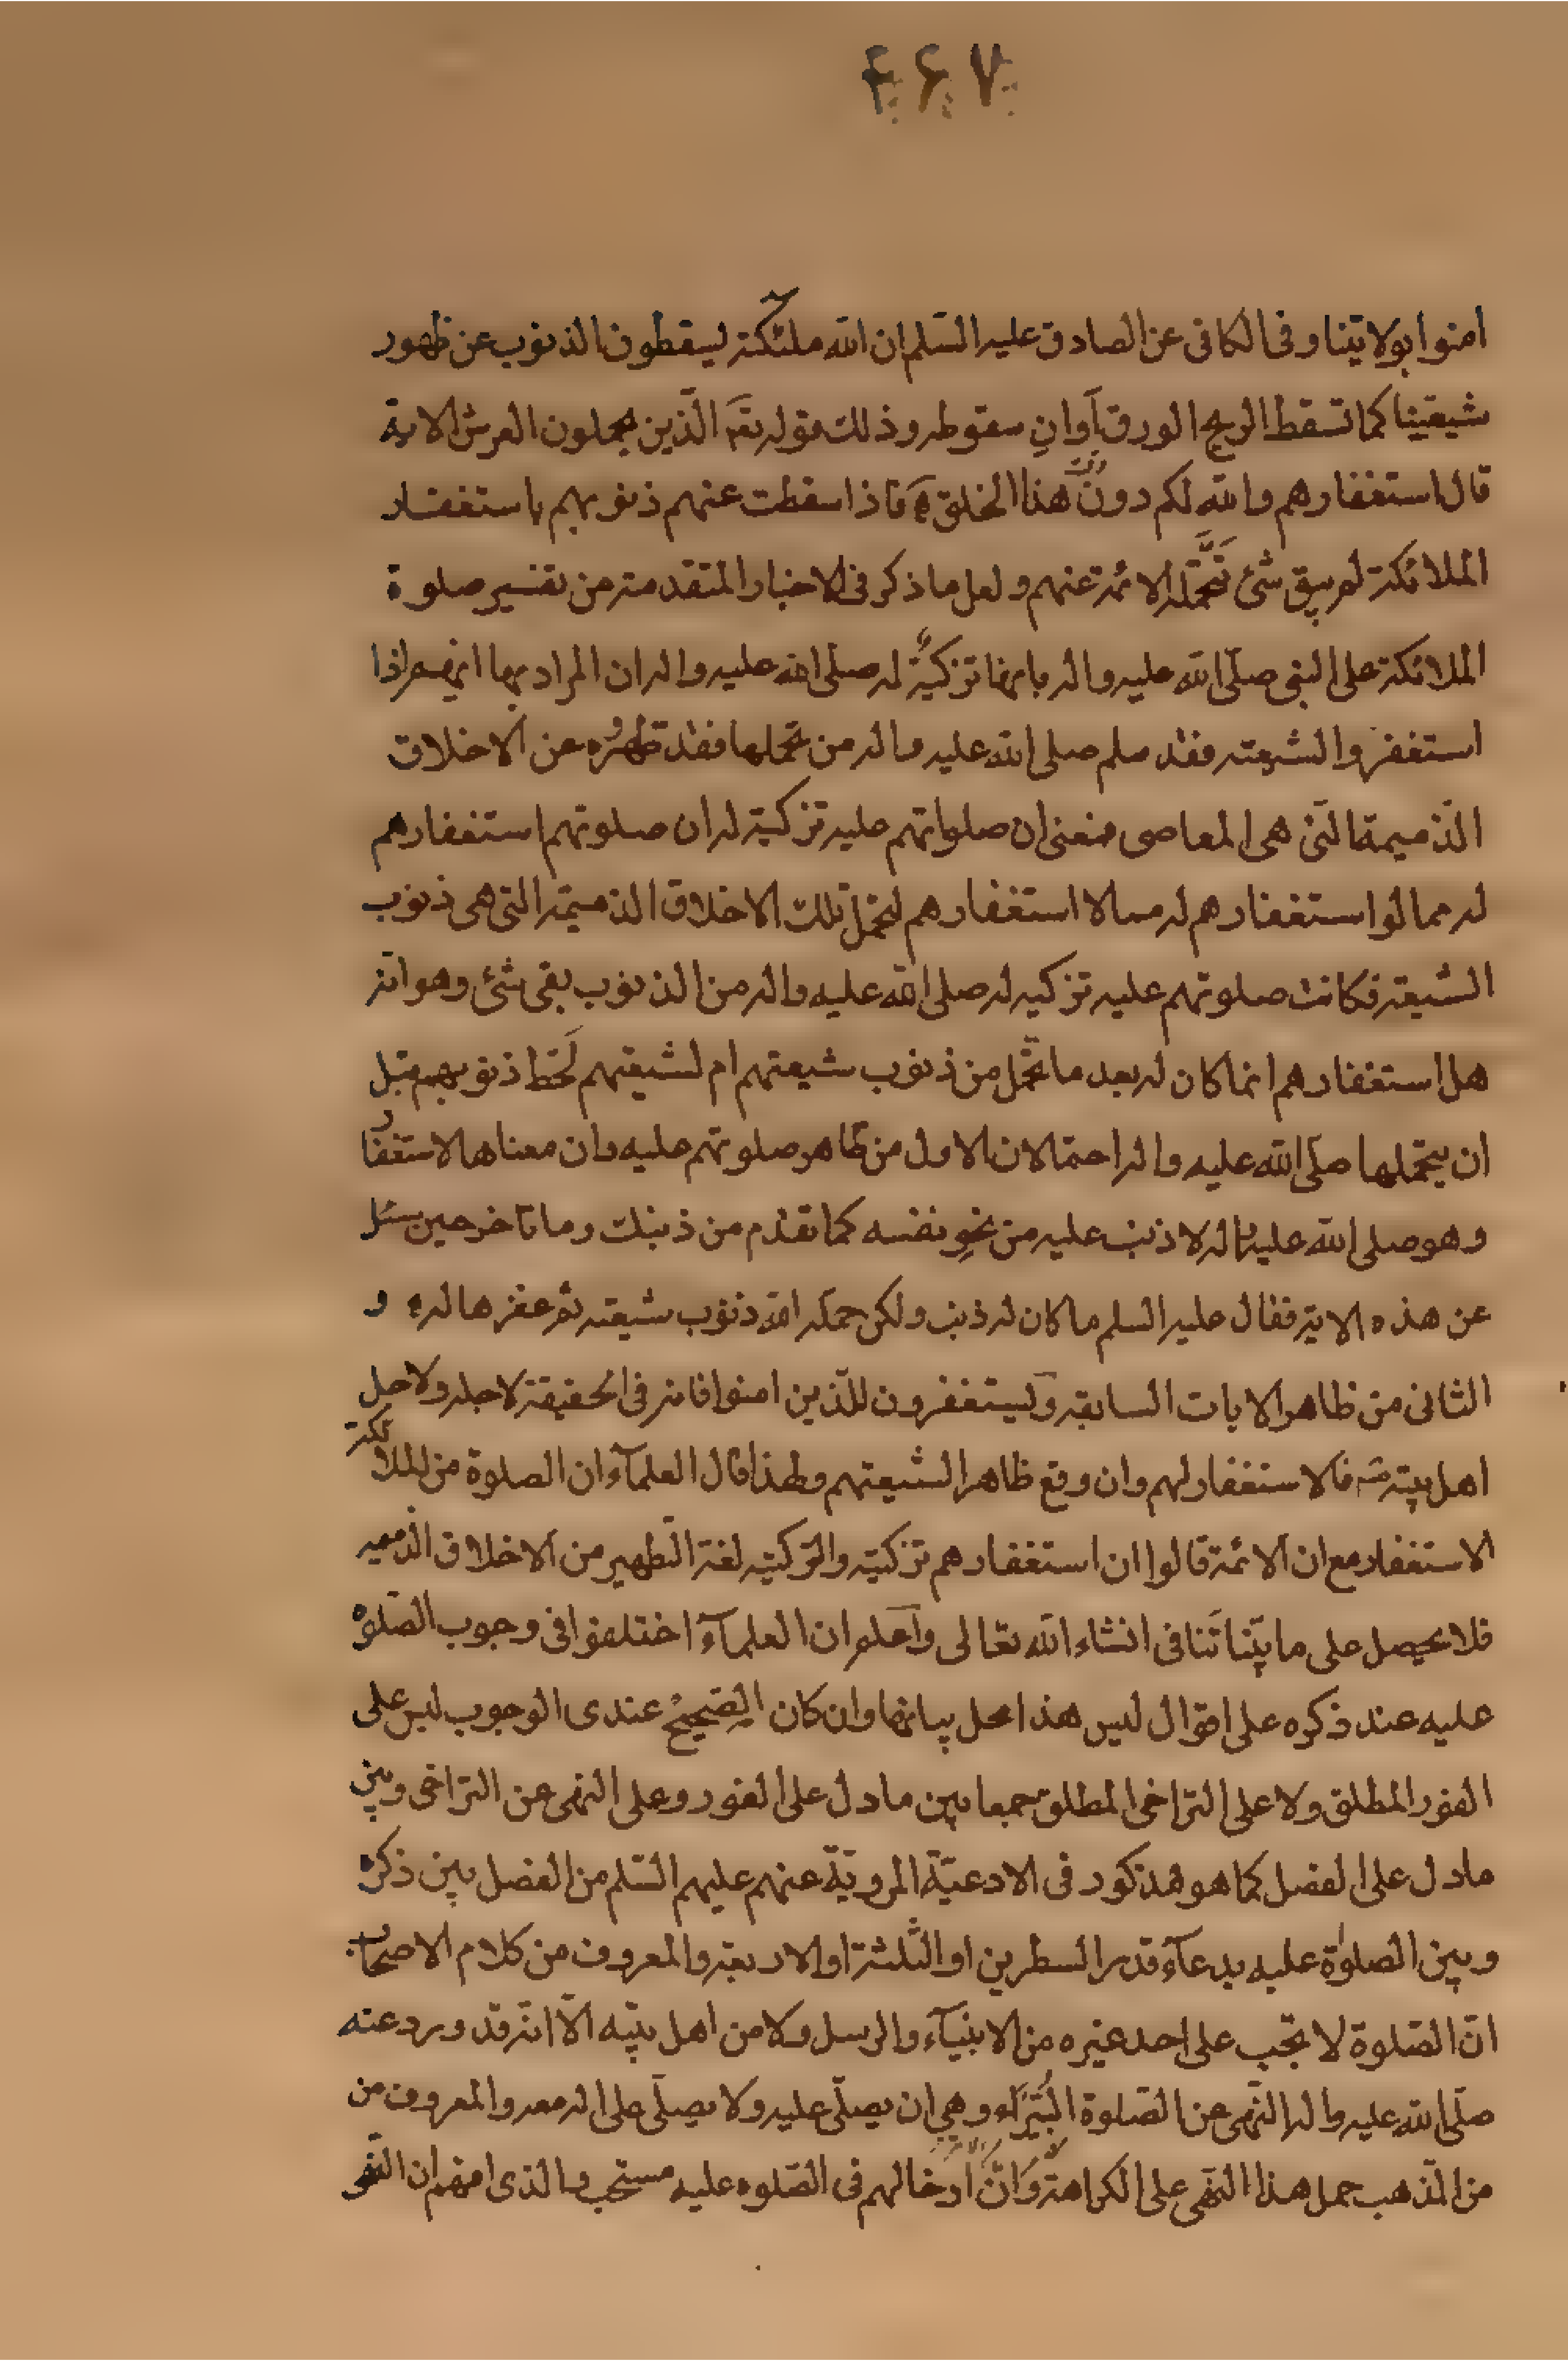 ۴۶۷
امنوا بولايتنا وفى الكافى عن الصادق عليه السّلم ان الله ملئكة يسقطون الذنوب عن ظهور
شيعتنا كما تسقط الريح الورق اَوانِ سقوطه وذلك قوله تعَم الّذين يحملون العرش الاية
قال استغفارهم والله لكم دون هذا الخلق فاذا سقطت عنهم ذنوبهم باستغفار
الملائكة لم يبق شئ تتَحَمَّله الائمة عنهم ولعل ما ذكر فى الاخبار المتقدمة من تفسير صلوة
الملائكة على النبى صلّى الله عليه واله بانها تزكيةٌ له صلى الله عليه واله ان المراد بها انهم اذا
استغفروا لشيعته فقد سلم صلى الله عليه واله من تحملها فقد تطهره عن الاخلاق
الذميمة الّتى هى المعاصى فمعنى ان صلواتهم عليه تزكية له ان صلوتهم استغفارهم
له مما لو استغفارهم له ممالا استغفارهم لتحمل تلك الاخلاق الذميمة التى هى ذنوب
الشيعة فكانت صلوتهم عليه تزكيه له صلى الله عليه واله من الذنوب بقى شئ وهو انه
هل استغفارهم انما كان له بعد ما تحمّل من ذنوب شيعتهم ام لشيعتهم لحَطّ ذنوبهم قبل
ان يتحملها صلّى الله عليه واله احتمالان الاول من ظاهر صلوتهم عليه وان معناها الاستغفار
وهو صلى الله عليه واله لا ذنب عليه من نحوِ نفسه كما تقدم من ذنبك وما تاخر حين سئل
عن هذه الاية فقال عليه السلم ما كان له ذنب ولكن حمله الله ذنوب شيعته ثم غفرها له و
الثانى من ظاهر الايات السابقة ويَستغفرون للّذين امنوا فانه فى الحقيقة لاجله ولاجل
اهل بيته فالاستغفار لهم وان وقع ظاهرا لشيعتهم ولهذا قال العلمآء ان الصلوة من الملائكة
الاستغفار مع ان الائمة قالوا ان استغفارهم تزكية والتزكية لغة التّطهير من الاخلاق الذميمه
فلا يحصل على ما بيّنا تَنافى انشاء الله تعالى واَعلم ان العلمآء اختلفوا فى وجوب الصّلوة
عليه عند ذكره على اقوال ليس هذا محل بيانها وان كان الصّحيحُ عندى الوجوب ليس على
الفور المطلق ولا على التراخى المطلق جمعا بين ما دل على الفور وعلى النهى عن التراخى وبين
مادل على الفصل كما هو مذكور فى الادعيّة المرويّة عنهم عليهم السّلم من الفصل بين ذكره
وبين الصلوٰة عليه بدعآء قدر السطرين او الثّلثة او الاربعة والمعروف من كلام الاصحاب
انّ الصّلوة لا تجب على احد غيره من الانبيآء والرسل ولا من اهل بيّته الّا انّه قد ورد عنه
صلّى الله عليه واله النّهى عن الصّلوة البُتَيْرَآء وهى ان يصلّى عليه ولا يصلّى على اله معه والمعروف من
من المذهب حمل هذا النّهى على الكراهة وَانّ ادخالهم فى الصّلوه عليه مستحب والذى افهم ان النّهى